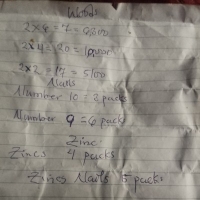 Woods
2x8 = 7 =
2x4 = 20 =
2x2 17 = 5100
Nails
Number 10 = 2 packs
Number 9 = 6 packs
Zinc
Zincs 4 packs
Zincs Nails 5 packs